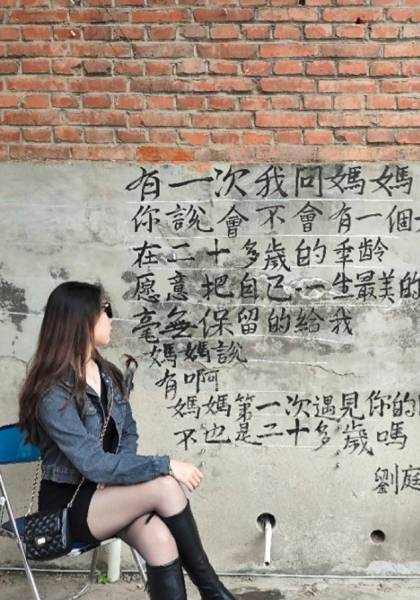 有一次我问媽媽
你說會不會有一個
在二十多歲的年龄
愿意把自己一生最美的
毫無保留的給我
媽媽說
有啊
媽媽第一次遇見你的
不也是二十多歲嗎
劉庭